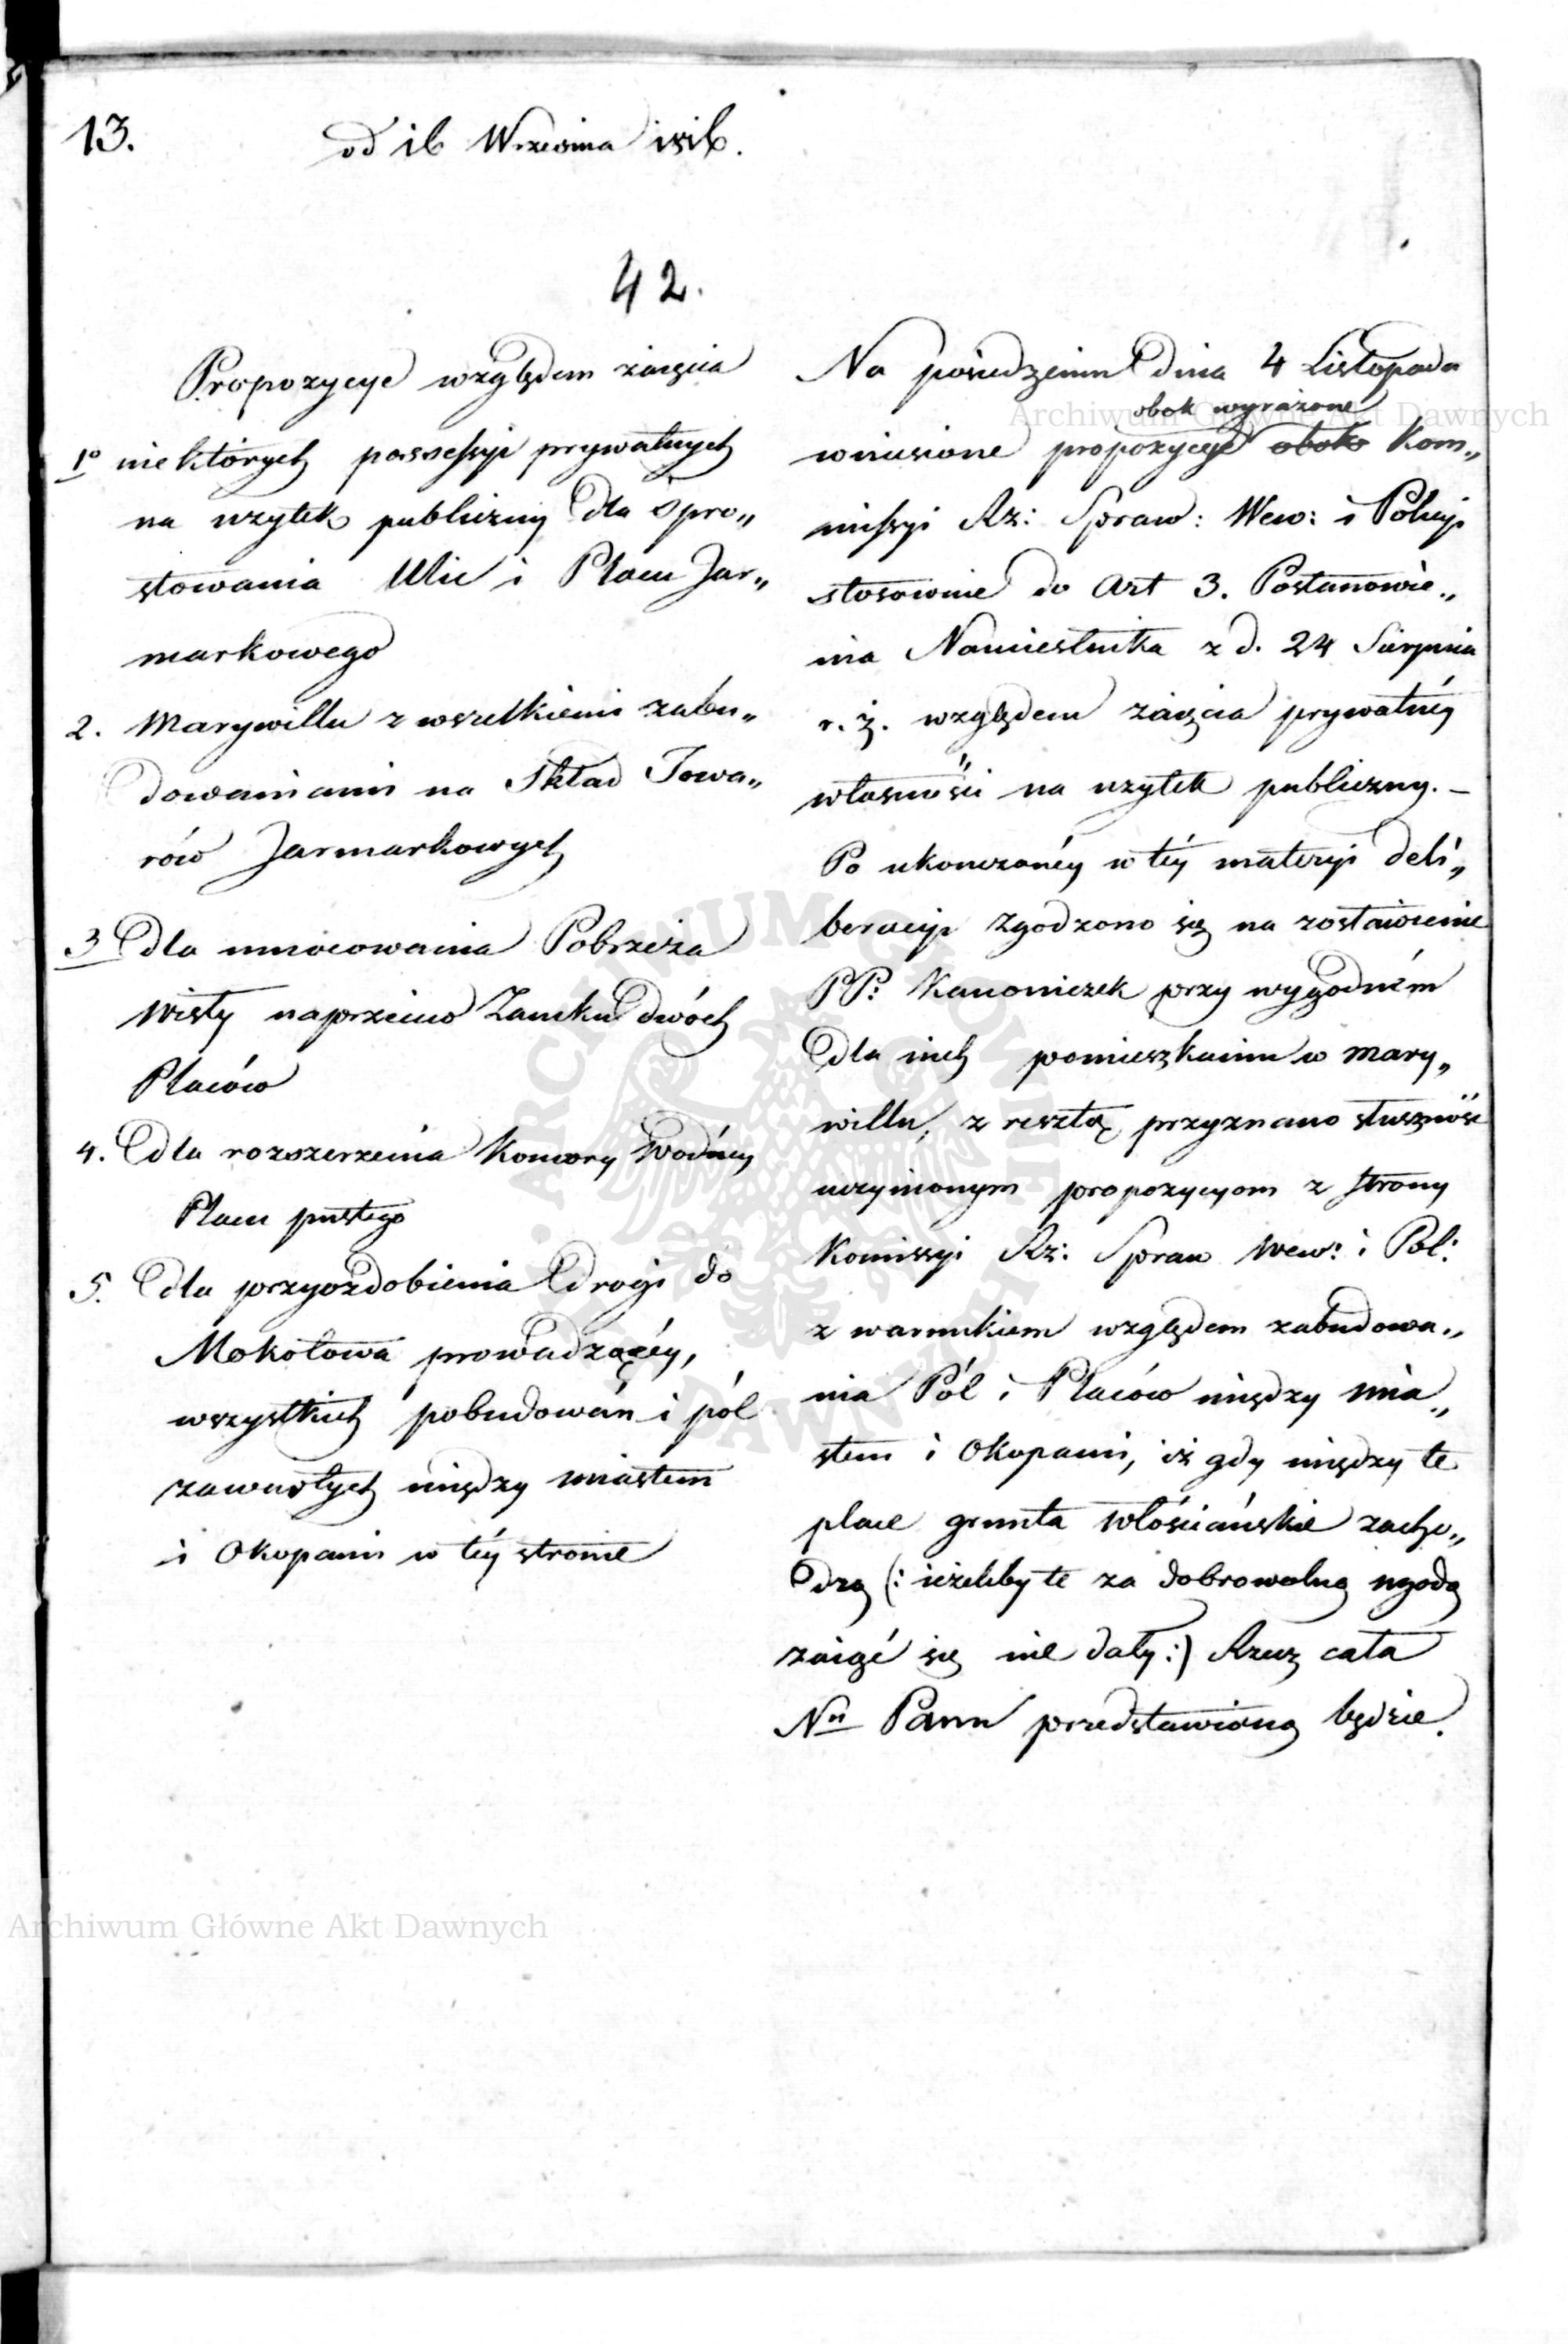 13.
od 16 Września 1816.
42.
Propozycye względem zaięcia
1o niektórych possessyi prywatnych
na użytek publiczny dla spro„
stowania Ulic i Placu Jar„
markowego
2. Marywillu z wszelkiemi zabu„
dowaniami na Skład Towa„
rów Jarmarkowych
3 dla umocowania Pobrzeża
Wisły naprzeciw Zamku dwóch
Placów
4. dla rozszerzenia Komory Wodney
Placu pustego
5. dla przyozdobienia drogi do
Mokotowa prowadzącéy,
wszystkich pobudowań i pól
zawartych między miastem
i Okopami w téy stronie
Na posiedzeniu dnia 4 Listopada
obok wyrażone
wniesione propozycye obok Kom„
missyi Rz: Spraw: Wew: i Policyi
stosownie do Art 3. Postanowie„
nia Namiestnika z d. 24 Sierpnia
r. z. względem zaięcia prywatnéy
własności na użytek publiczny. –
Po ukończonéy w téy materyi deli„
beracyi zgodzono się na zostawienie
PP: Kanoniczek przy wygodném
dla nich pomieszkaniu w Mary„
willu, z resztą przyznano słuszność
uczynionym propozycyom z strony
Komissyi Rz: Spraw Wew: i Pol:
z warunkiem względem zabudowa„
nia Pól i Placów między mia„
stem i Okopami, iż gdy między te
place grunta włościańskie zacho„
dzą (: ieżeliby te za dobrowolną ugodą
zaiąć się nie dały :) Rzecz cała
Nu Panu przedstawioną będzie.
Archiwum Główne Akt Dawnych
Archiwum Główne Akt Dawnych